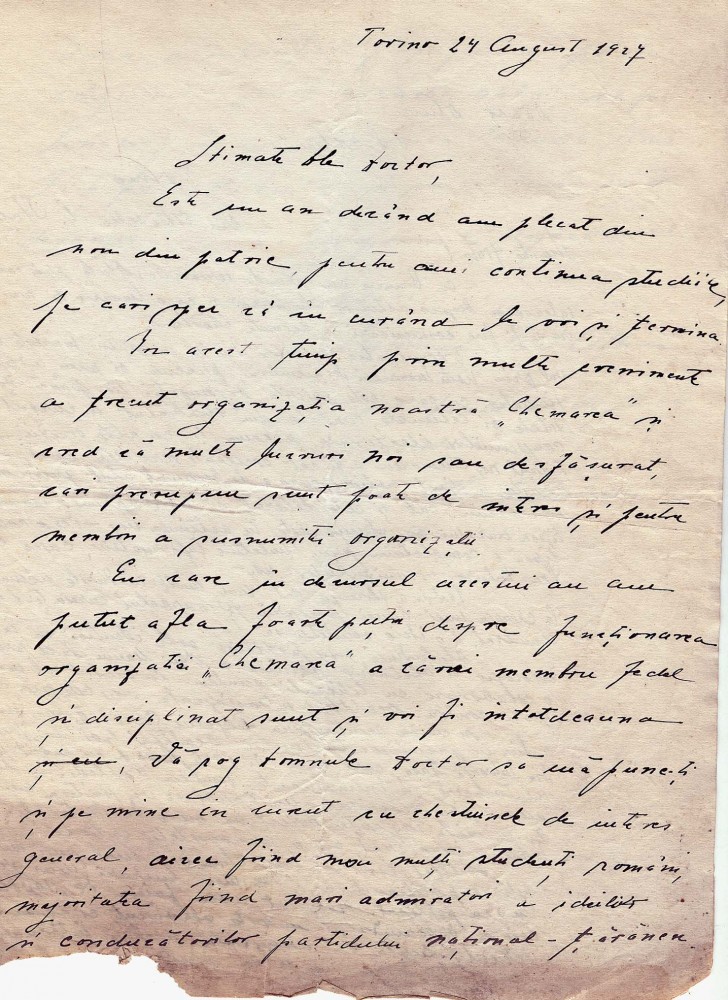 Torino 24 August 1927
Stimate Dle Doctor,
Este un an decând am plecat din
nou din patrie, pentru ami continua studiile,
pe cari sper că in curând le voi și termina.
In acest timp prin multe evenimente
a trecut organizația noastră „Chemarea" și
cred că multe lucruri noi sau desfășurat,
cari presupun sunt poate de interes și pentru
membrii a susnumitei organizații
Eu care in decursul acestui an am
putut afla foarte puțin despre funcționarea
organizatiei „Chemarea" a cărui membru fidel
și disciplinat sunt și voi fi intotdeauna
și eu, Vă rog Domnule Doctor să mă puneți
și pe mine in curent cu chestiunile de interes
general, aicea fiind mai mulți studenți români,
majoritatea fiind mari admiratori a ideilor
și conducătorilor partidului național-țărănesc